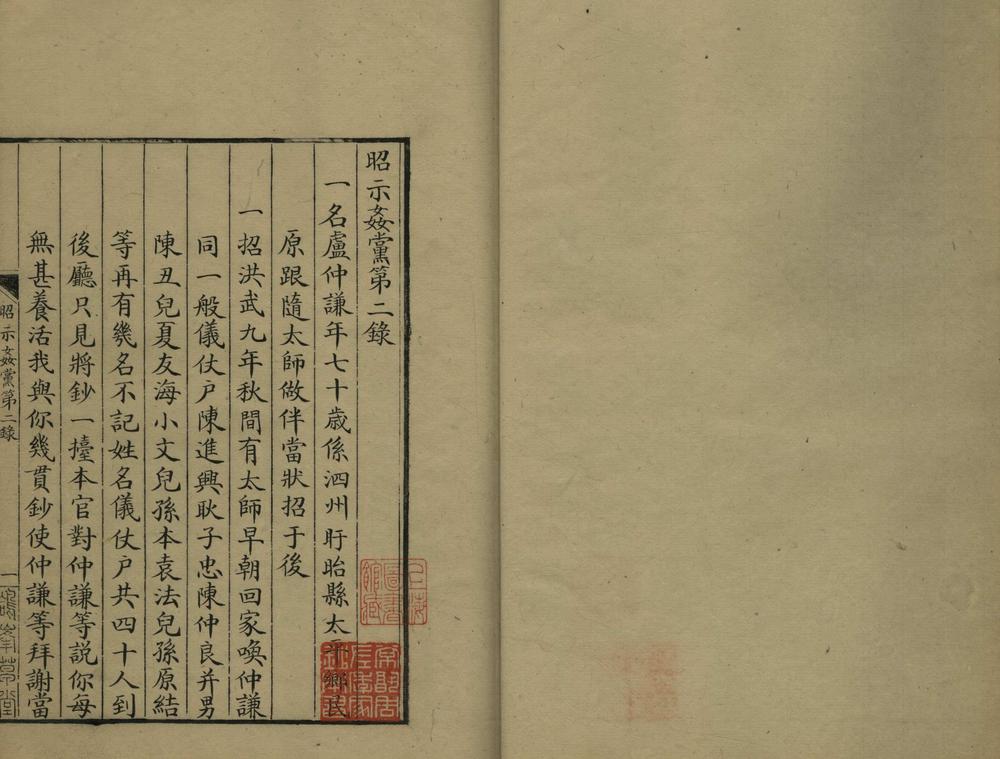 昭示姦黨第二錄
一名盧仲謙年七十歲係泗州盱眙縣太平鄉民
原跟隨太師做伴當狀招于後
一招洪武九年秋間有太師早朝回家喚仲謙
同一般儀仗户陳進興耿子忠陳仲良并男
陳丑兒夏友海小文兒孫本袁法兒孫原結
等再有幾名不記姓名儀仗户共四十人到
後廳只見將鈔一擡本官對仲謙等説你每
無甚養活我與你幾貫鈔使仲謙等拜謝當
昭示姦黨第二錄
一